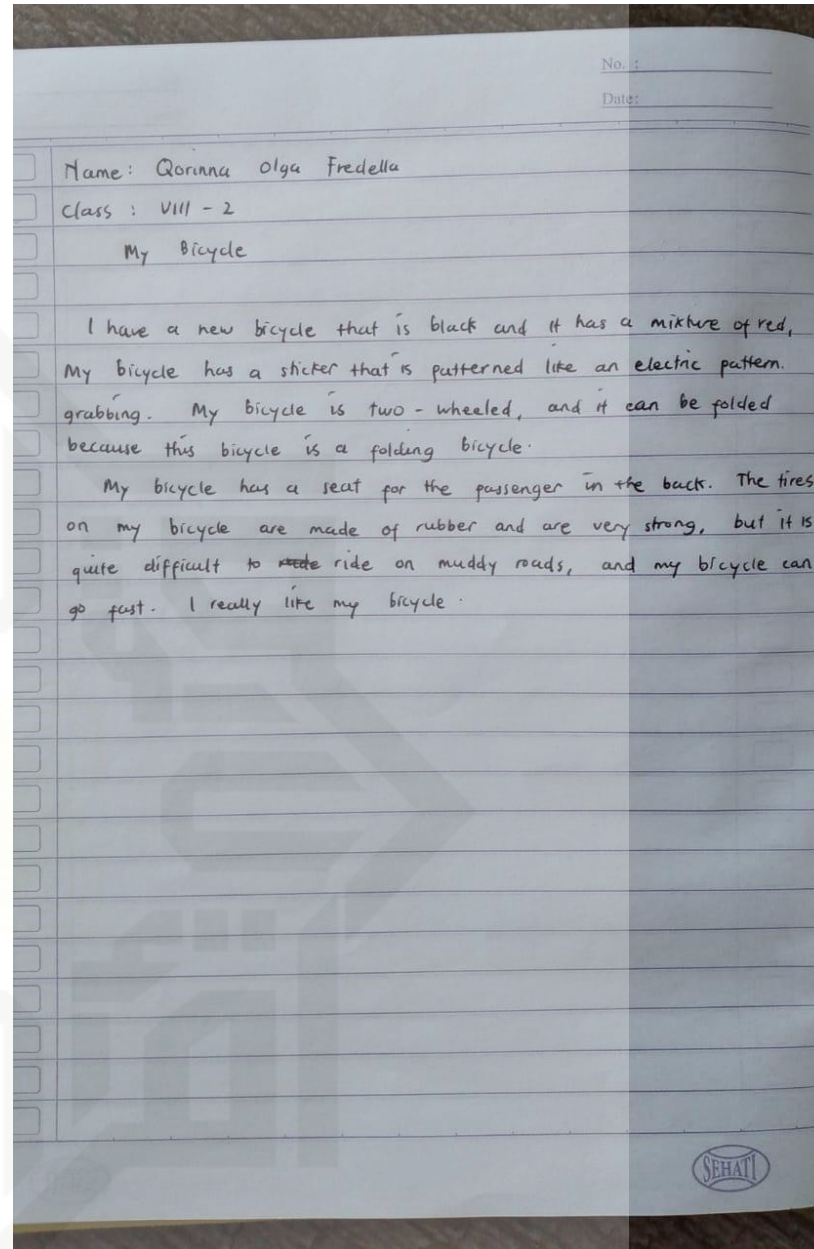 No. :
Date:
Name: Qorinna Olga Fredella
Class : VIII - 2
My Bicycle
I have a new bicycle that is black and it has a mixture of red,
My bicycle has a sticker that is patterned like an electric pattern.
grabbing. My bicycle is two - wheeled, and it can be folded
because this bicycle is a folding bicycle.
My bicycle has a seat for the passenger in the back. The tires
on my bicycle are made of rubber and are very strong, but it is
quite difficult to ride on muddy roads, and my bicycle can
go fast. I really like my bicycle.
SEHATI